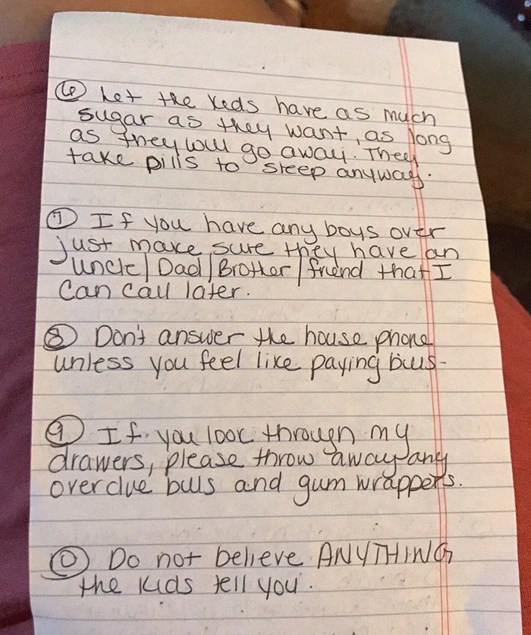 ⑥ Let the kids have as much
sugar as they want, as long
as they will go away. They
take pills to sleep anyway.
⑦ If you have any boys over
just make sure they have an
uncle/Dad/Brother/friend that I
can call later.
⑧ Don't answer the house phone
unless you feel like paying bills.
⑨ If you look through my
drawers, please throw away any
overdue bills and gum wrappers.
⑩ Do not believe ANYTHING
the kids tell you.